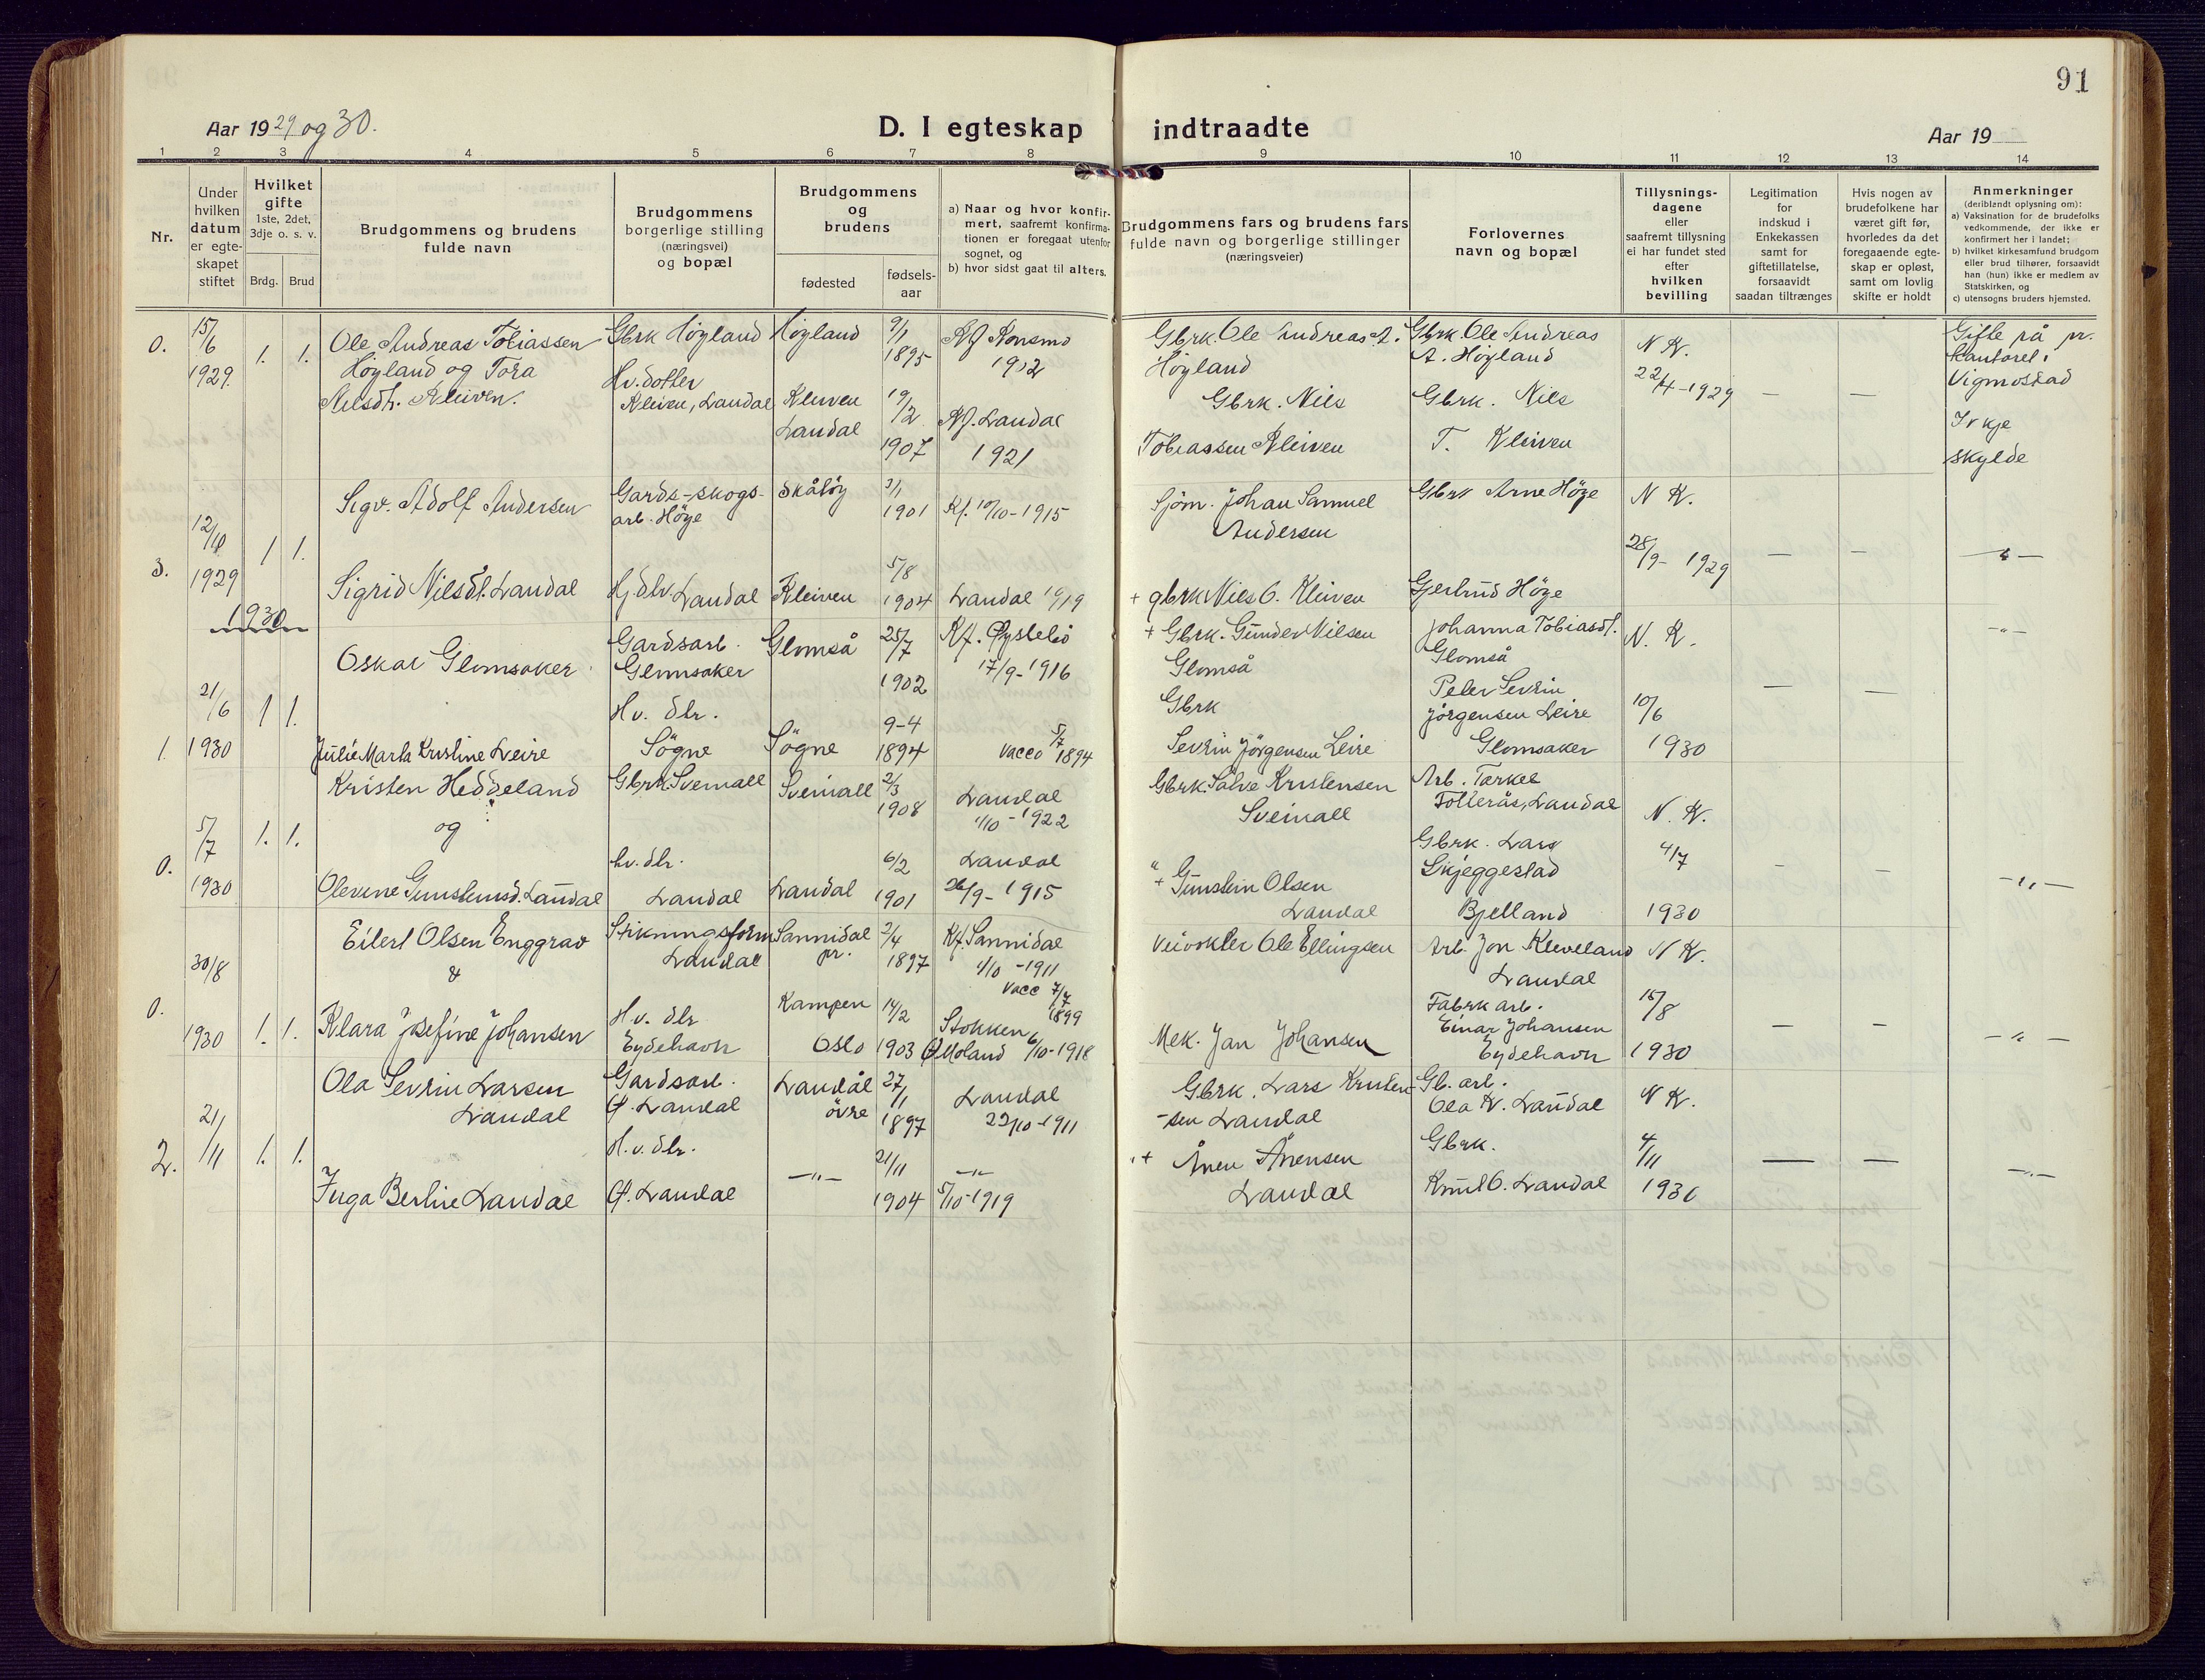 91
Aar 1929 og 30.
D. I egteskap indtraadte
Aar 19
1 2 3 4 5 6 7 8 9 10 11 12 13 14
Nr.
Under
hvilken
datum
er egte-
skapet
stiftet
Hvilket
gifte
1ste, 2det,
3dje o. s. v.
Brdg. Brud
Brudgommens og brudens
fulde navn
Brudgommens
borgerlige stilling
(næringsvei)
og bopæl
Brudgommens
og
brudens
fødested
fødsels-
aar
a) Naar og hvor konfir-
mert, saafremt konfirma-
tionen er foregaat utenfor
sognet, og
b) hvor sidst gaat til alters.
Brudgommens fars og brudens fars
fulde navn og borgerlige stillinger
(næringsveier)
Forlovernes
navn og bopæl
Tillysnings-
dagene
eller
saafremt tillysning
ei har fundet sted
efter
hvilken
bevilling
Legitimation
for
indskud i
Enkekassen
samt for
giftetillatelse,
forsaavidt
saadan tiltrænges
Hvis nogen av
brudefolkene har
været gift før,
hvorledes da det
foregaaende egte-
skap er opløst,
samt om lovlig
skifte er holdt
Anmerkninger
(deriblandt oplysning om):
a) Vaksination for de brudefolks
vedkommende, der ikke er
konfirmert her i landet;
b) hvilket kirkesamfund brudgom
eller brud tilhører, forsaavidt
han (hun) ikke er medlem av
Statskirken, og
c) utensogns bruders hjemsted.
0.
15/6
1929.
1. 1.
Ole Andreas Tobiassen
Høyland og Tora
Nilsdt. Kleiven.
Gbrk Høyland
Hv. dotter
Kleiven, Laudal
Høyland
Kleven
Laudal
9/1
1895
19/2
1907
Kf Konsmo
1912
Kf. Laudal
1921
Gbrk. Ole Andreas A.
Høyland
Gbrk. Nils
Tobiassen Kleiven
Gbrk. Ole Andreas
A. Høyland
Gbrk. Nils
T. Kleiven
N K.
22/4-1929
—
—
Gifte på pr.
kantoret i
Vigmostad
Ivkje
skylde
3.
12/10
1929
1 1.
Sigv. Adolf Andersen
Sigrid Nilsdt. Laudal
Gards-skogs-
arb. Höye
Hj. dtr. Laudal
Skålöy
Kleiven
1/1
1901
5/8
1904
Kf. 10/10-1915
Laudal 1919
Sjøm. Johan Samuel
Andersen
+ gbrk Niels O. Kleiven
Gbrk Arne Höye
Gjertrud Höye
N K.
28/9- 1929
—
—
—"—
1930
1.
21/6
1930
1 1.
Oskar Glomsaker
Julie Marta Kristine Leire
Gardsarb.
Glomsaker
Hv. dtr.
Søgne
Glomså
Søgne
25/7
1902
9-4
1894
Kf. Øyslebö
17/9-1916
Vacc 5/7 1894
+ Gbrk. Gunder Nilsen
Glomså
Gbrk
Sevrin Jörgensen Leire
Johanna Tobiasdt.
Glomså
Peter Sevrin
Jörgensen Leire
Glomsaker
N. K.
10/6
1930
—
—
—"—
0.
5/7
1930
1. 1.
Kristen Heddeland
og
Olevine Gunsteinsd. Laudal
Gbrk. Sveinall
hv. dtr.
Laudal
Sveinall
Laudal
2/3
1908
6/2
1901
Laudal
1/10-1922
Laudal
26/9-1915
Gbrk. Salve Kristensen
Sveinall
+ Gunstein Olsen
Laudal
Arb. Tarkel
Follerås, Laudal
Gbrk. Lars
Skjeggestad
Bjelland
N. K.
4/7
1930
—
—
—"—
0.
30/8
1930
1. 1.
Eilert Olsen Enggrav
&
Klara Josefine Johansen
Stikningsform
Laudal
H.v. dtr
Eydehavn
Sannidal
pr.
Kampen
Oslo
2/4
1897
14/2
1903
Kf. Sannidal
1/10-1911
Vacc 7/7
1899
Stokken
Ø Moland 6/10-1918
Veivokter Ole Ellingsen
Mek. Jan Johansen
Arb. Jon Kleveland
Laudal
Fabrk arb.
Einar Johansen
Eydehavn
N K.
15/8
1930
—
—
—"—
2.
21/11
1. 1.
Ola Sevrin Larsen
Laudal
Inga Bertine Laudal
Gardsarb.
Ø. Laudal
H.v. dtr.
Ø. Laudal
Laudal
övre
—"—
27/1
1897
21/11
1904
Laudal
22/10-1911
—"—
5/10-1919
Gbrk. Lars Kristen-
-sen Laudal
+ Ånen Ånensen
Laudal
Gb. arb.
Ola K. Laudal
Gbrk.
Knut O. Laudal
N K.
4/11
1930
—
—
—"—